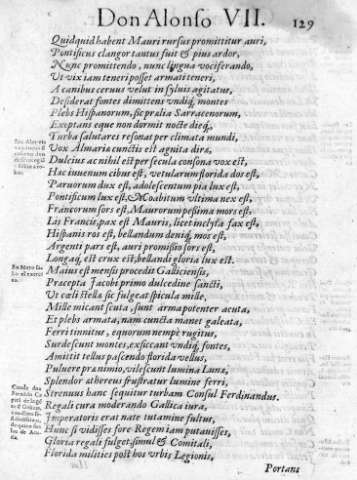 Don Alonso VII. 129
Quidquid habent Mauri rursus promittitur auri,
Pontificus clangor tantus fuit & pius ardor,
Nunc promittendo, nunc lingua vociferando,
Ut vix iam teneri posset armati teneri,
A canibus ceruus velut in syluis agitatus,
Desiderat fontes dimittens vndiq; montes
Plebs Hispanorum, sic pralia Sarracenorum,
Exoptans eque non dormit nocte dieq;
Turba salutares resonat per climata mundi,
Vox Almaria cunctis est agnita dira,
Dulcius ac nihil est per secula consona vox est,
Hac iuuenum cibus est, vetularum florida dos est,
Paruorum dux est, adolescentum pia lux est,
Pontificum lux est, & Moabitum vltima nex est,
Francorum sors est, Maurorum pessima mors est,
Lis Francis, pax est Mauris, licet inclyta fax est,
Hispanis ros est, bellandum deniq; mos est,
Argenti pars est, auri promissio fors est,
Longaq; est crux est, bellandi gloria lux est.
En Mayo sa
Maius est mensis procedit Galliciensis,
Pracepta Iacobi primo dulcedine sancti,
Ut coeli stella sic fulgeat spicula mille,
Mille micant scuta, sunt arma potenter acuta,
Et plebs armata, nam cuncta manet galeata,
Ferri tinnitus, equorum nempe rugitus,
Surdescunt montes, exsiccant vndiq; fontes,
Amittit tellus pascendo florida vellus,
Puluere pranimio, vilescunt lumina Luna,
Splendor athereus frustratur lumine ferri,
Strenuus hanc sequitur turbam Consul Ferdinandus.
Regali cura moderando Gallica iura,
Imperatoris erat nate tutamine fultus,
Hunc si vidisses fore Regem iam putauisses,
Gloria regali fulget, simul & Comitali,
Florida milities post hos vrbis Legionis,
Portans